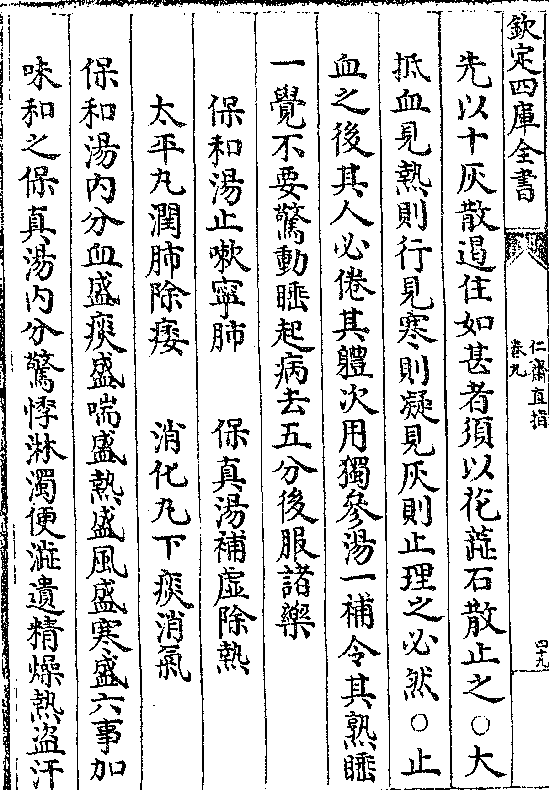 欽定四庫全書
仁齋直指
卷九
四九
先以十灰散遏住如甚者須以花蕋石散止之○大
抵血見熱則行見寒則凝見灰則止理之必然○止
血之後其人必倦其體次用獨參湯一補令其熟睡
一覺不要驚動睡起病去五分後服諸藥
保和湯止嗽寧肺　保真湯補虛除熱
太平丸潤肺除痿　消化丸下痰消氣
保和湯內分血盛痰盛喘盛熱盛風盛寒盛六事加
味和之保真湯內分驚悸淋濁便澁遺精燥熱盜汗